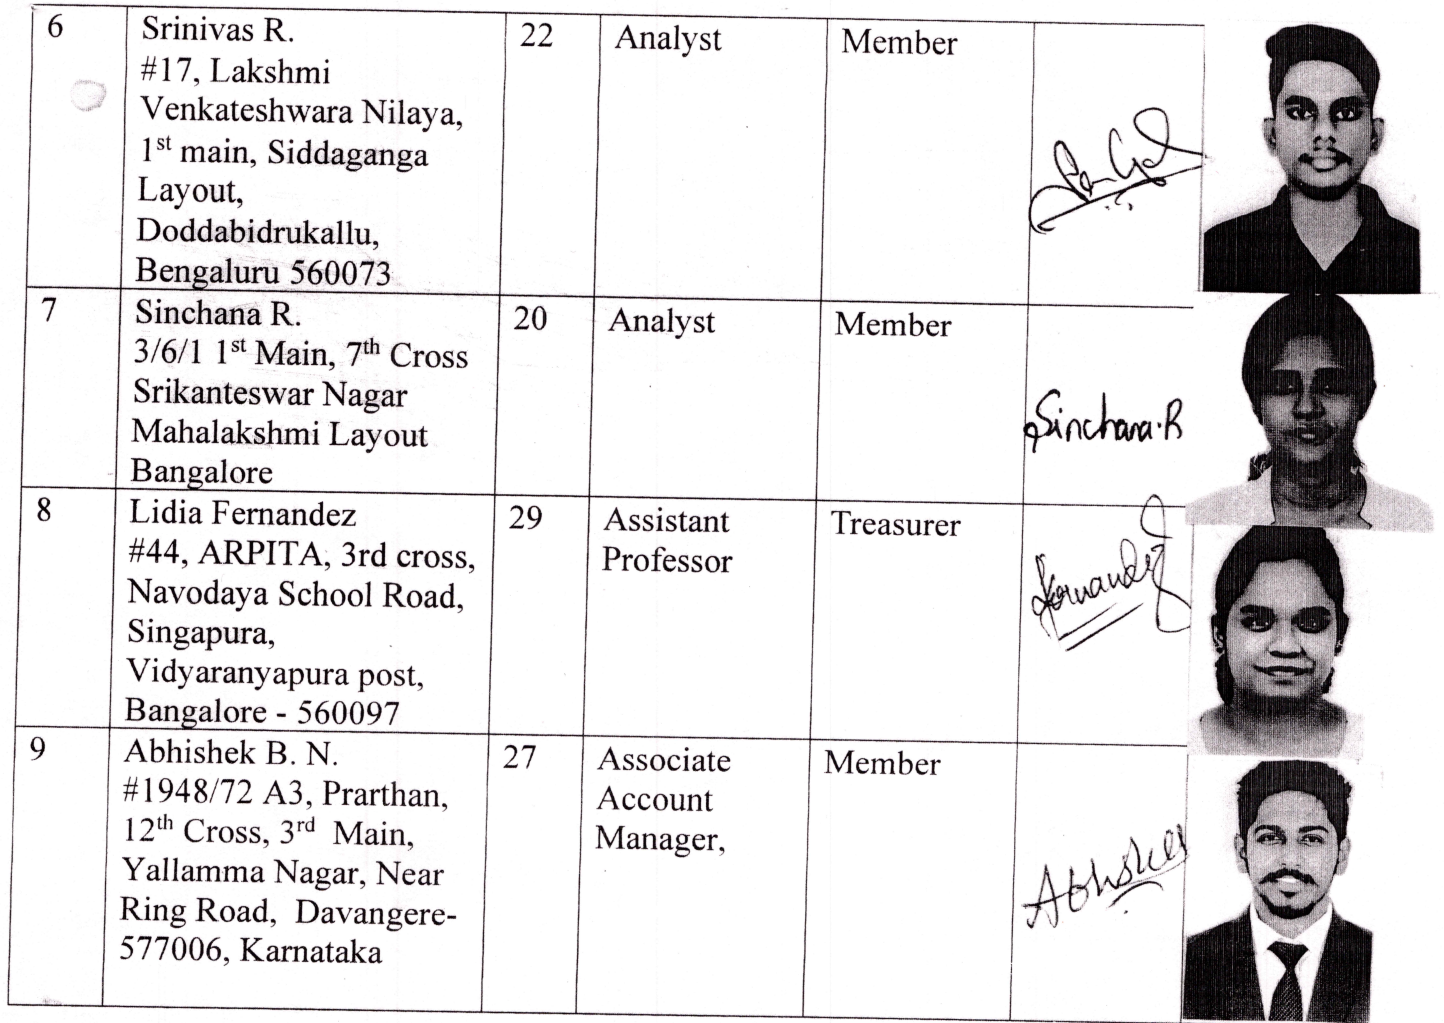 6
Srinivas R.
#17, Lakshmi
Venkateshwara Nilaya,
1st main, Siddaganga
Layout,
Doddabidrukallu,
Bengaluru 560073
22
Analyst
Member
7
Sinchana R.
3/6/1 1st Main, 7th Cross
Srikanteswar Nagar
Mahalakshmi Layout
Bangalore
20
Analyst
Member
Sinchana.R
8
Lidia Fernandez
#44, ARPITA, 3rd cross,
Navodaya School Road,
Singapura,
Vidyaranyapura post,
Bangalore - 560097
29
Assistant
Professor
Treasurer
Fernandez
9
Abhishek B. N.
#1948/72 A3, Prarthan,
12th Cross, 3rd Main,
Yallamma Nagar, Near
Ring Road, Davangere-
577006, Karnataka
27
Associate
Account
Manager,
Member
Abhishek